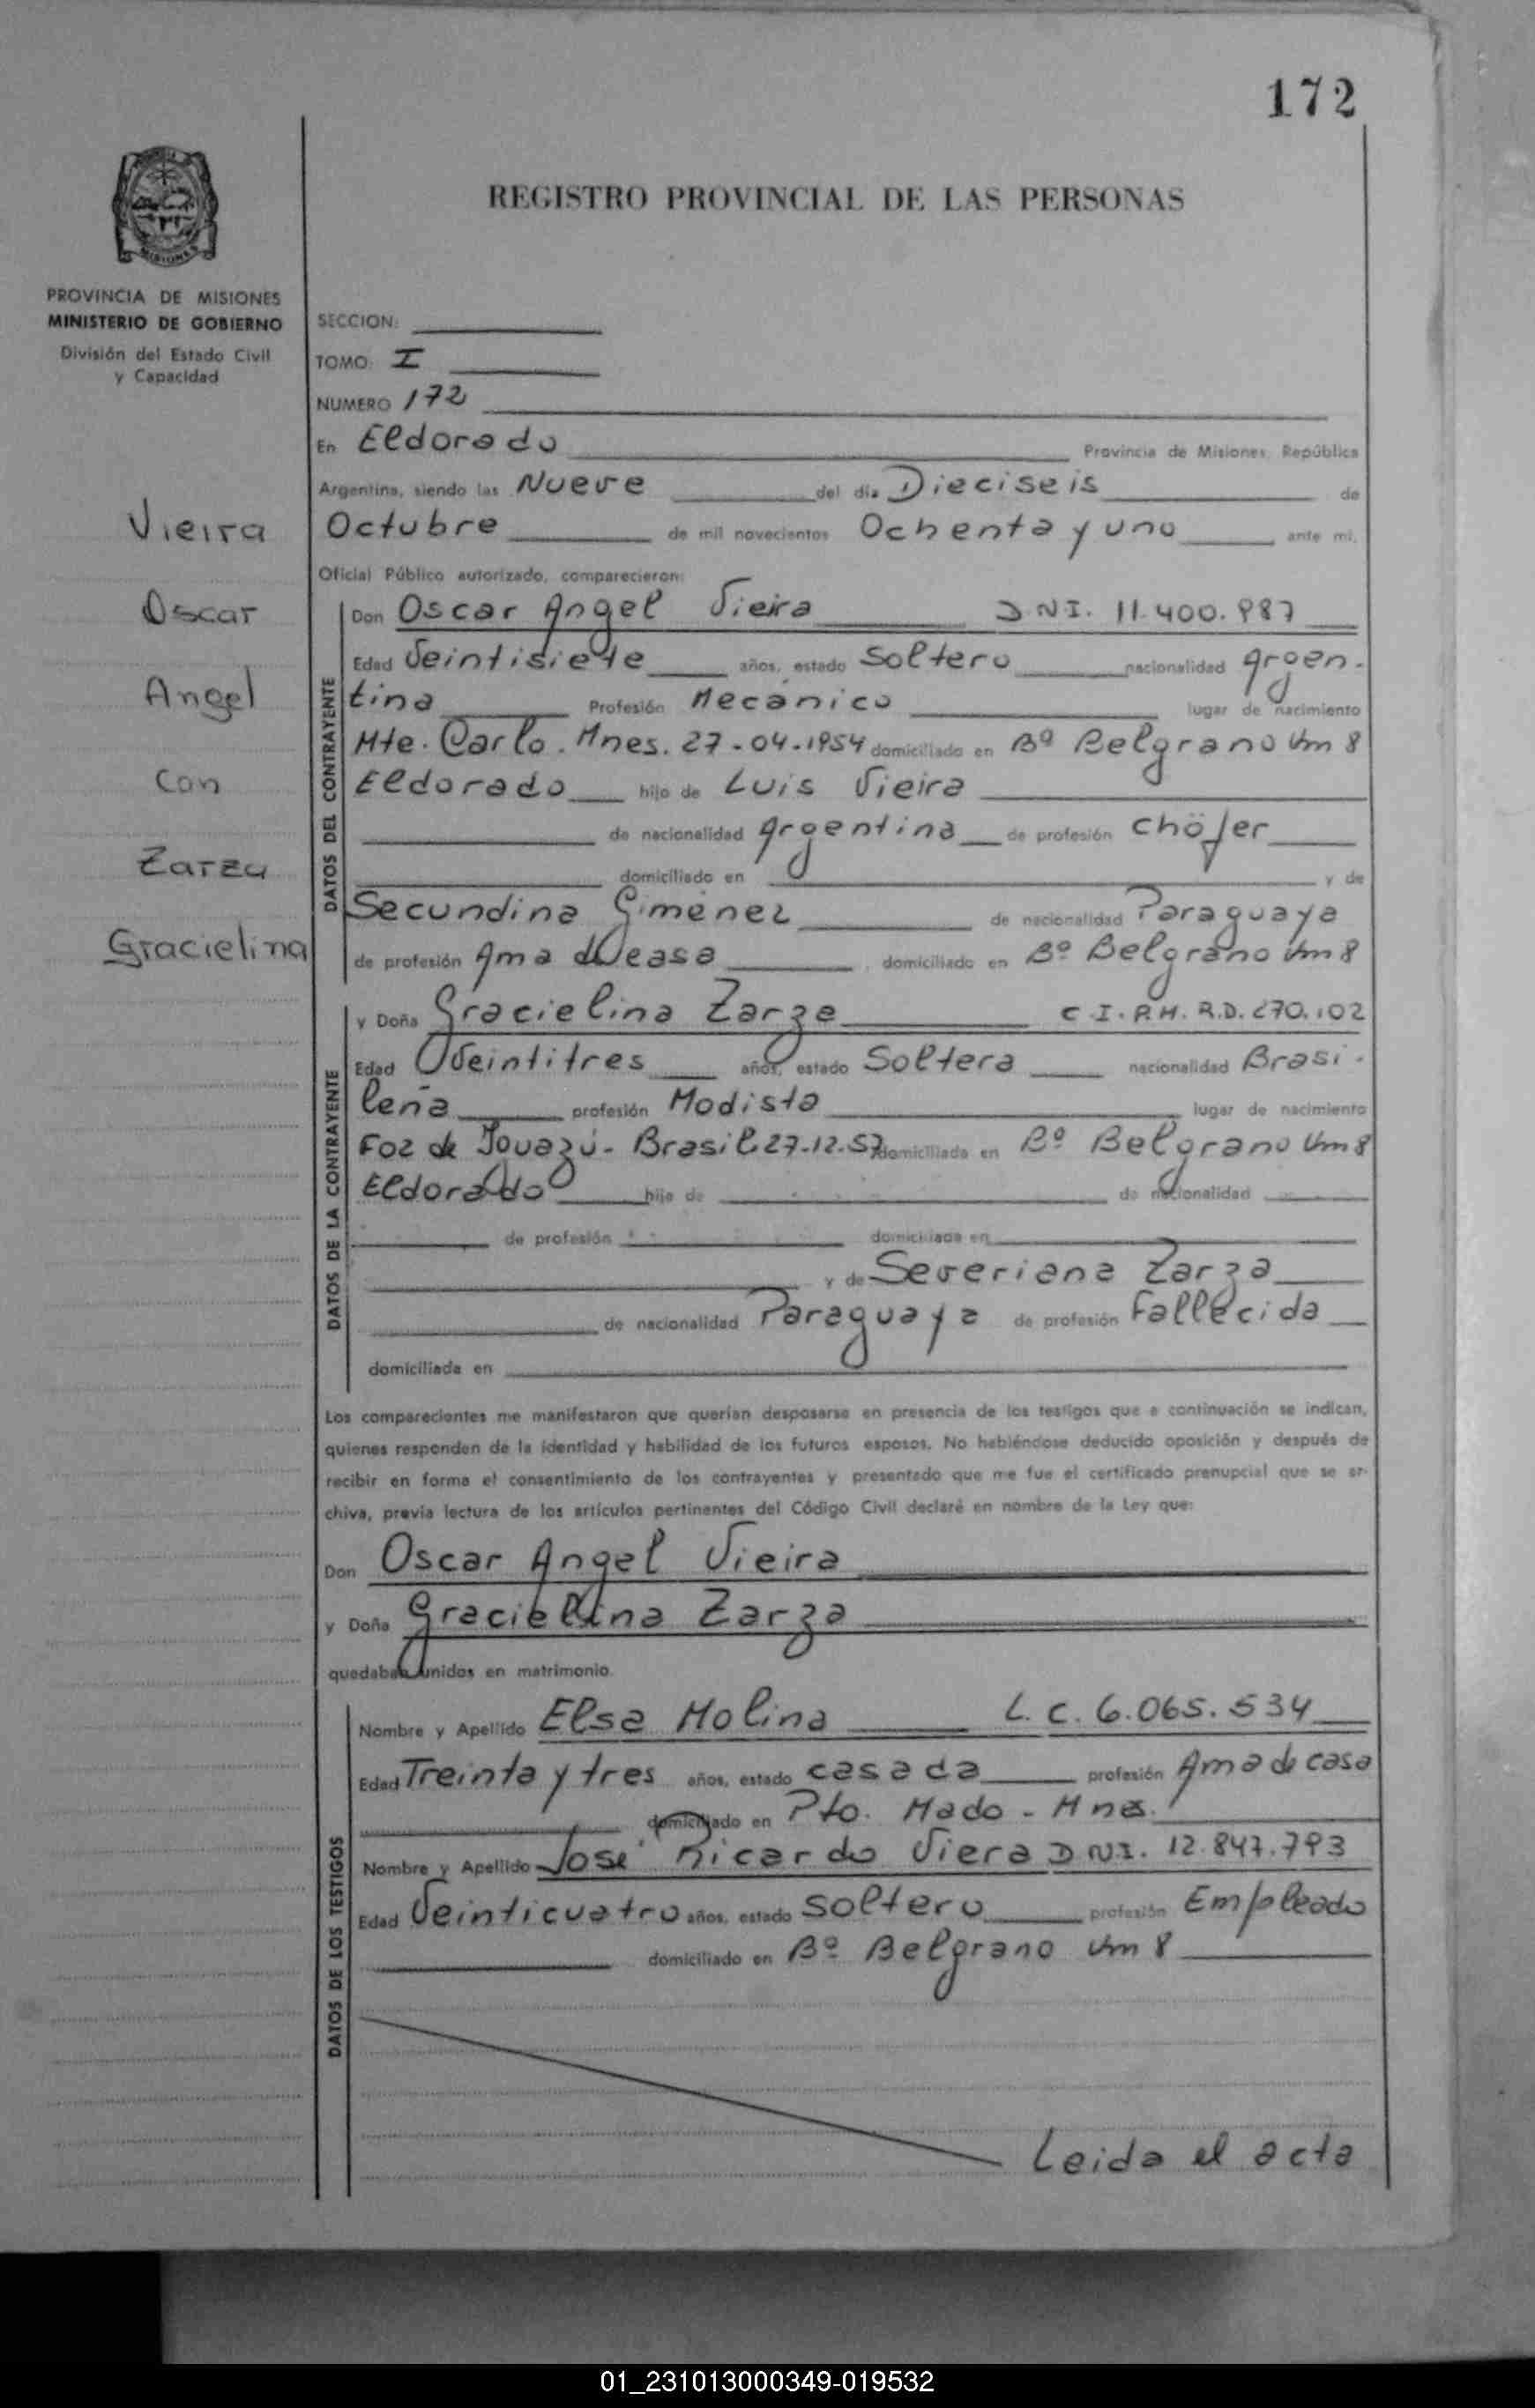 172
REGISTRO PROVINCIAL DE LAS PERSONAS
PROVINCIA DE MISIONES
MINISTERIO DE GOBIERNO
División del Estado Civil
y Capacidad
Vieira
Oscar
Angel
Con
Zarza
Gracielina
SECCION:
TOMO: I
NUMERO 172
En Eldorado Provincia de Misiones, República
Argentina, siendo las Nueve del día Dieciseis de
Octubre de mil novecientos Ochenta y uno ante mí,
Oficial Público autorizado, comparecieron:
DATOS DEL CONTRAYENTE
Don Oscar Angel Vieira D.N.I. 11.400.987
Edad Veintisiete años, estado Soltero nacionalidad Argen-
tina Profesión Mecánico lugar de nacimiento
Mte. Carlo. Mnes. 27-04-1954 domiciliado en Bº Belgrano Km 8
Eldorado hijo de Luis Vieira
de nacionalidad Argentina de profesión Chófer
domiciliado en y de
Secundina Gimenez de nacionalidad Paraguaya
de profesión Ama de casa, domiciliado en Bº Belgrano Km 8
DATOS DE LA CONTRAYENTE
y Doña Gracielina Zarza C.I. P.M. R.D. 270.102
Edad Veintitres años, estado Soltera nacionalidad Brasi-
leña profesión Modista lugar de nacimiento
Foz de Iguazú- Brasil 27-12-57 domiciliada en Bº Belgrano Km 8
Eldorado hija de de nacionalidad
de profesión domiciliado en
y de Severiana Zarza
de nacionalidad Paraguaya de profesión Fallecida
domiciliada en
Los comparecientes me manifestaron que querían desposarse en presencia de los testigos que a continuación se indican,
quienes responden de la identidad y habilidad de los futuros esposos. No habiéndose deducido oposición y después de
recibir en forma el consentimiento de los contrayentes y presentado que me fue el certificado prenupcial que se ar-
chiva, previa lectura de los artículos pertinentes del Código Civil declaré en nombre de la Ley que:
Don Oscar Angel Vieira
y Doña Gracielina Zarza
quedaban unidos en matrimonio.
DATOS DE LOS TESTIGOS
Nombre y Apellido Elsa Molina L.C. 6.065.534
Edad Treinta y tres años, estado casada profesión Ama de casa
domiciliado en Pto. Mado - Mnes.
Nombre y Apellido José Ricardo Viera D.N.I. 12.847.793
Edad Veinticuatro años, estado soltero profesión Empleado
domiciliado en Bº Belgrano Km 8
Leida el acta
01_231013000349-019532